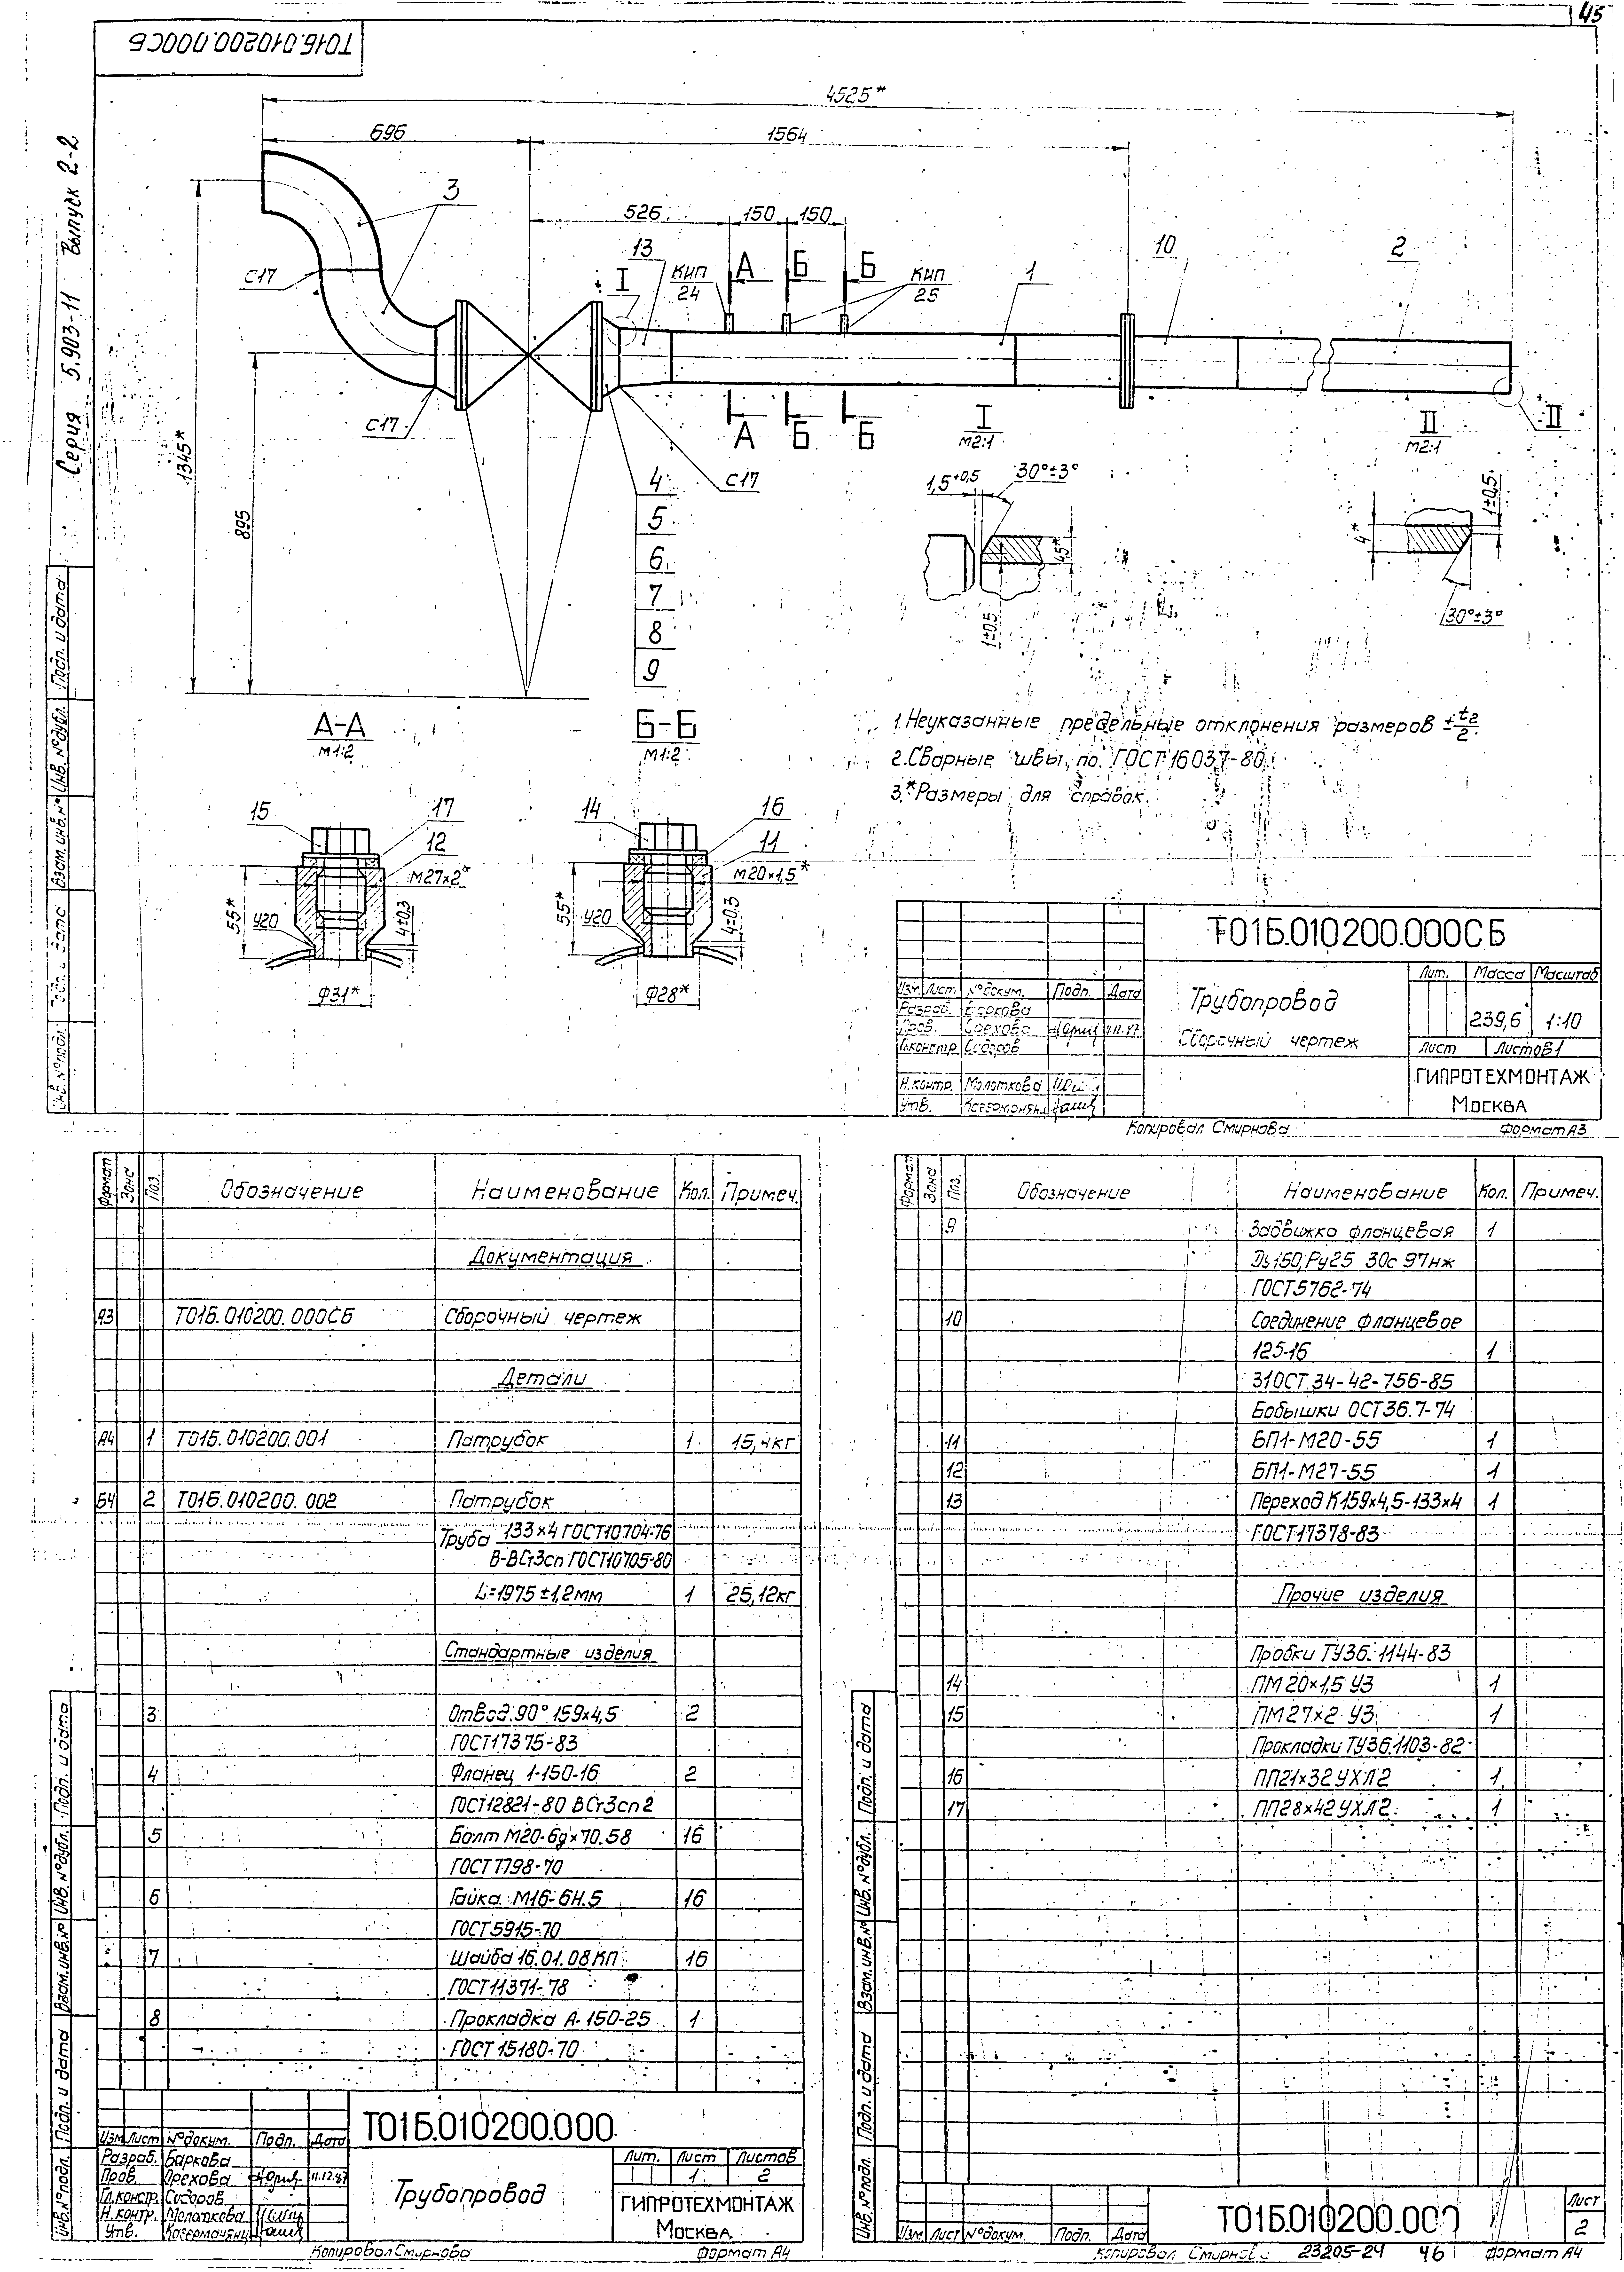 45
Т01Б.010200.000СБ
Серия 5.903-11 Выпуск 2-2
4525*
696
1564
3
526
150
150
13
10
2
С17
I
КИП
24
А
Б
Б
КИП
25
1
С17
А
Б
Б
I
М2:1
II
М2:1
II
1345*
895
4
С17
5
6
7
8
9
1,5+0,5
30°±3°
45*
1±0,5
4*
1±0,5
30°±3°
А-А
М1:2
Б-Б
М1:2
1.Неуказанные предельные отклонения размеров ± t2/2
2.Сварные швы по ГОСТ 16037-80
3.*Размеры для справок.
15
17
12
М27×2*
55*
У20
4±0,3
Ф31*
14
16
11
М20×1,5*
55*
У20
4±0,3
Ф28*
Т01Б.010200.000СБ
Трубопровод
Сборочный чертеж
Лит. Масса Масштаб
239,6 1:10
Лист Листов 1
ГИПРОТЕХМОНТАЖ
Москва
Изм. Лист. №докум. Подп. Дата
Разраб. Баркова
Пров. Орехова 11.12.87
Гл.констр Сидоров
Н.контр. Молоткова
Утв.
Копировал Смирнова Формат А3
Подп. и дата
Инв.№дубл.
Взам.инв.№
Подп. и дата
Инв.№подл.
Формат Зона Поз. Обозначение Наименование Кол. Примеч.
Документация
А3 Т01Б.010200.000СБ Сборочный чертеж
Детали
А4 1 Т01Б.010200.001 Патрубок 1 15,4кг
Б4 2 Т01Б.010200.002 Патрубок
Труба 133×4 ГОСТ10704-76
В-ВСт3сп ГОСТ10705-80
L=1975±1,2мм 1 25,12кг
Стандартные изделия
3 Отвод 90° 159×4,5 2
ГОСТ17375-83
4 Фланец 1-150-16 2
ГОСТ12821-80 ВСт3сп2
5 Болт М20-6g×70.58 16
ГОСТ7798-70
6 Гайка М16-6Н.5 16
ГОСТ5915-70
7 Шайба 16.01.08КП 16
ГОСТ11371-78
8 Прокладка А-150-25 1
ГОСТ 15180-70
Т01Б.010200.000
Изм Лист №докум. Подп. Дата
Разраб. Баркова
Пров. Орехова 11.12.87
Гл.констр. Сидоров
Н.контр. Молоткова
Утв.
Трубопровод
Лит. Лист Листов
1 2
ГИПРОТЕХМОНТАЖ
Москва
Копировал Смирнова Формат А4
Подп. и дата
Инв.№дубл.
Взам.инв.№
Подп. и дата
Инв.№подл.
Формат Зона Поз. Обозначение Наименование Кол. Примеч.
9 Задвижка фланцевая 1
Ду150, Ру25 30с 97нж
ГОСТ5762-74
10 Соединение фланцевое
125-16 1
31ОСТ 34-42-756-85
Бобышки ОСТ36.7-74
11 БП1-М20-55 1
12 БП1-М27-55 1
13 Переход К159×4,5-133×4 1
ГОСТ17378-83
Прочие изделия
Пробки ТУ36.1144-83
14 ПМ 20×1,5 У3 1
15 ПМ27×2 У3 1
Прокладки ТУ36.1103-82
16 ПП21×32 УХЛ2 1
17 ПП28×42 УХЛ2 1
Подп. и дата
Инв.№дубл.
Взам.инв.№
Подп. и дата
Инв.№подл.
Изм. Лист №докум. Подп. Дата
Т01Б.010200.000
Лист
2
Копировал Смирнова 23205-24 46 Формат А4